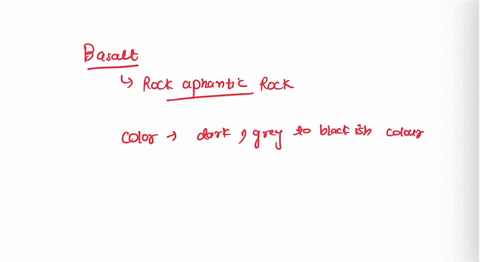 Basalt
↳ Rock aphantic Rock
color → dark, grey to blackish colour